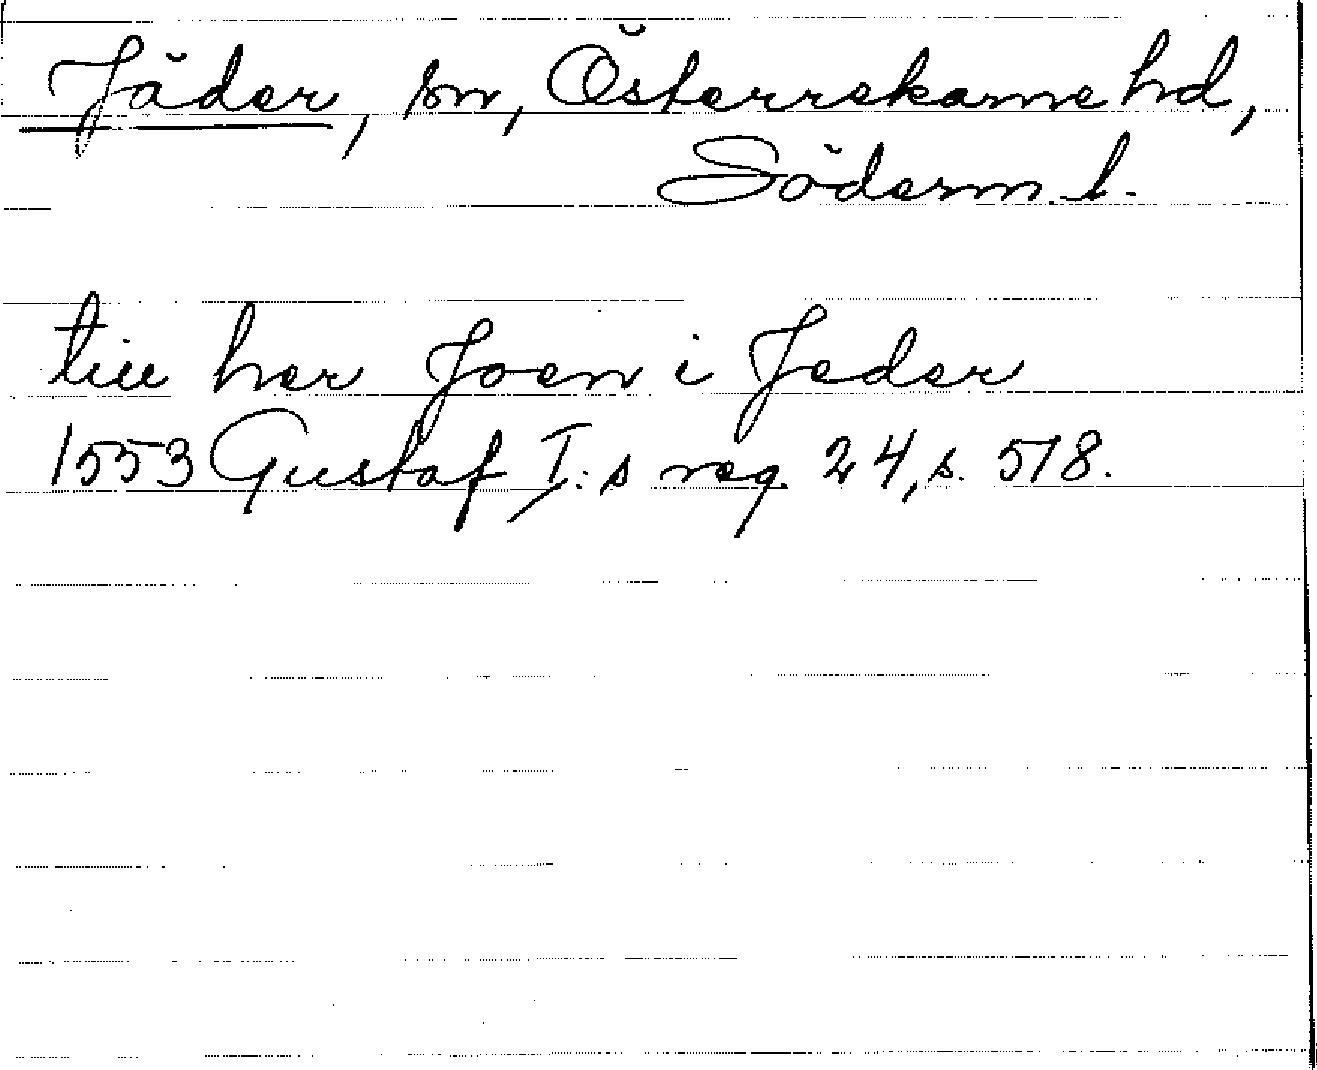 Jäder, sn, Österrekarne hd,
Söderm. l.
till her Joen i Jeder
1553 Gustaf I:s reg. 24, s. 518.